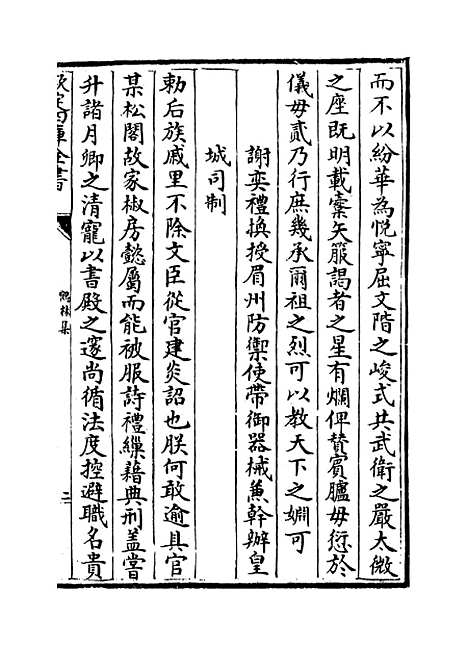 而不以紛華為悅寧屈文階之峻式共武衛之嚴太微
之座既明載櫜矢箙謁者之星有爛俾賛賔臚毋愆於
儀毋貳乃行庶幾承爾祖之烈可以教天下之婣可
謝奕禮換授眉州防禦使帶御器械蕉幹辦皇
城司制
勅后族戚里不除文臣從官建炎詔也朕何敢逾具官
某松閣故家椒房懿屬而能被服詩禮繅藉典刑盖嘗
升諸月卿之清寵以書殿之邃尚循法度控避職名貴
欽定四庫全書
鄮林集
二